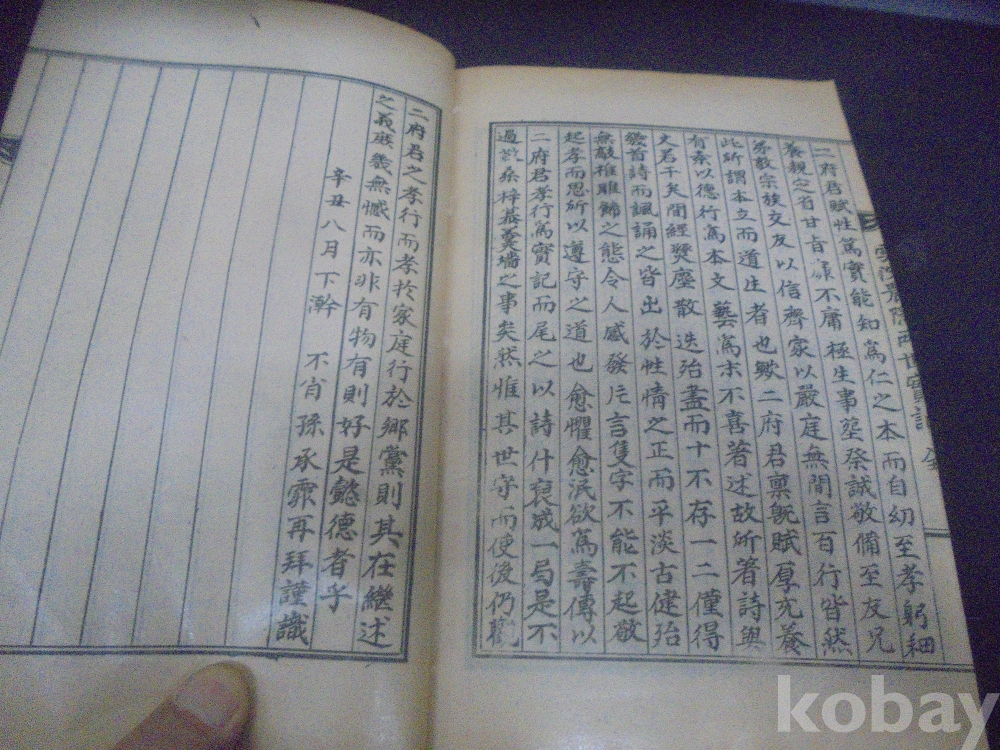 二府君賦性篤實能知爲仁之本而自幼至孝躬耕
養親之旨甘旨靡不庸極生事塟祭誠敬備至友兄
弟敦宗族交友以信齊家以嚴庭無間言百行皆然
此所謂本立而道生者也歟二府君禀旣賦厚充養
有素以德行爲本文藝爲末不喜著述故所著詩與
文若干矣間經燹塵散迭殆盡而十不存一二僅得
幾首詩而諷誦之皆出於性情之正而平淡古健殆
無敲椎雕篩之態令人感發片言隻字不能不起敬
起孝而思所以遵守之道也愈懼愈泯欲爲壽傳以
二府君孝行爲實記而尾之以詩什裒成一局是不
過桑梓墓羹墻之事矣然惟其世守而使後仍
二府君之孝行而孝於家庭行於鄕黨則其在繼述
之義庶幾無憾而亦非有物有則好是懿德者乎
辛丑八月下澣 不肖孫承霏再拜謹識
兩世實記
kobay